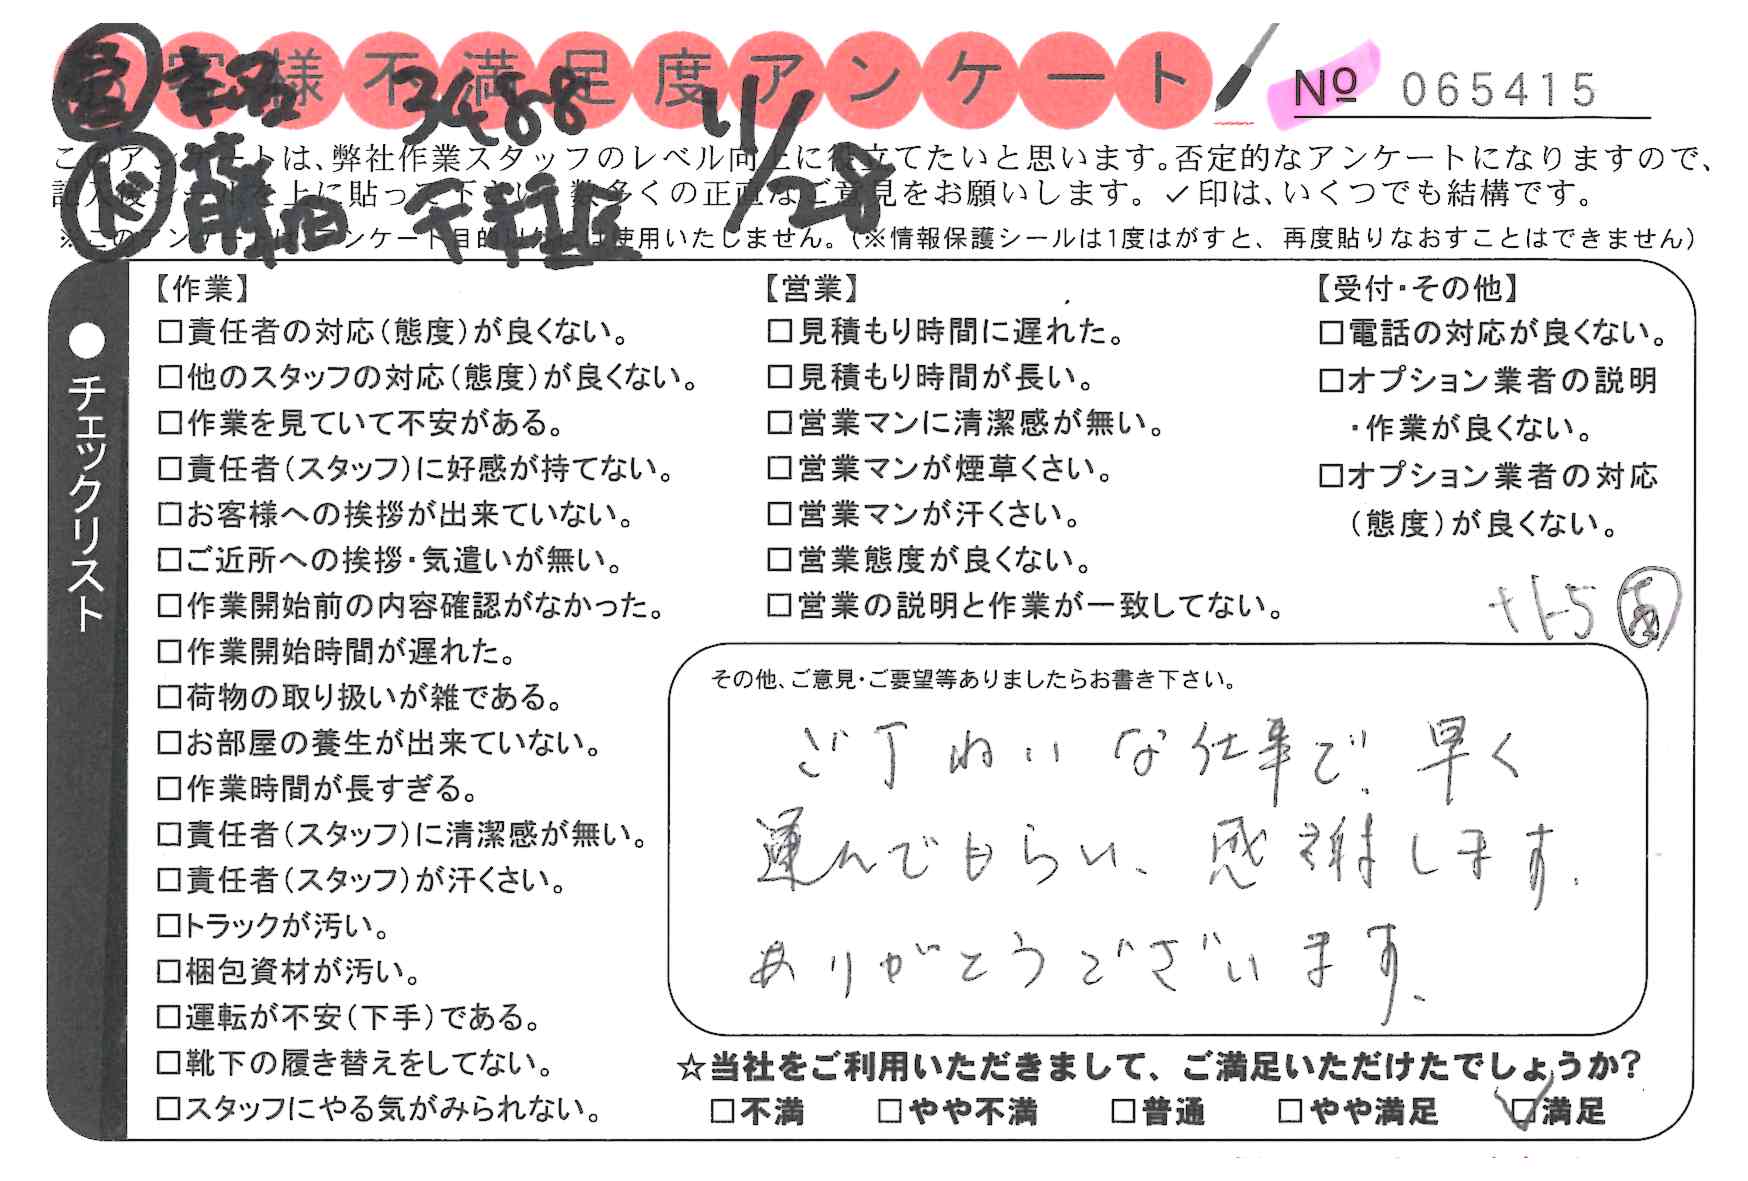 お客様不満足度アンケート
№ 065415
3488 11/28
このアンケートは、弊社作業スタッフのレベル向上に役立てたいと思います。否定的なアンケートになりますので、
記入後シールを上に貼って下さい。数多くの正直なご意見をお願いします。✓印は、いくつでも結構です。
※このアンケートはアンケート目的以外には使用いたしません。(※情報保護シールは1度はがすと、再度貼りなおすことはできません)
●チェックリスト
【作業】
□責任者の対応(態度)が良くない。
□他のスタッフの対応(態度)が良くない。
□作業を見ていて不安がある。
□責任者(スタッフ)に好感が持てない。
□お客様への挨拶が出来ていない。
□ご近所への挨拶・気遣いが無い。
□作業開始前の内容確認がなかった。
□作業開始時間が遅れた。
□荷物の取り扱いが雑である。
□お部屋の養生が出来ていない。
□作業時間が長すぎる。
□責任者(スタッフ)に清潔感が無い。
□責任者(スタッフ)が汗くさい。
□トラックが汚い。
□梱包資材が汚い。
□運転が不安(下手)である。
□靴下の履き替えをしてない。
□スタッフにやる気がみられない。
【営業】
□見積もり時間に遅れた。
□見積もり時間が長い。
□営業マンに清潔感が無い。
□営業マンが煙草くさい。
□営業マンが汗くさい。
□営業態度が良くない。
□営業の説明と作業が一致してない。
【受付・その他】
□電話の対応が良くない。
□オプション業者の説明
・作業が良くない。
□オプション業者の対応
(態度)が良くない。
その他、ご意見・ご要望等ありましたらお書き下さい。
ご丁ねいな仕事で、早く
運んでもらい、感謝します。
ありがとうございます。
☆当社をご利用いただきまして、ご満足いただけたでしょうか?
□不満 □やや不満 □普通 □やや満足 ☑満足